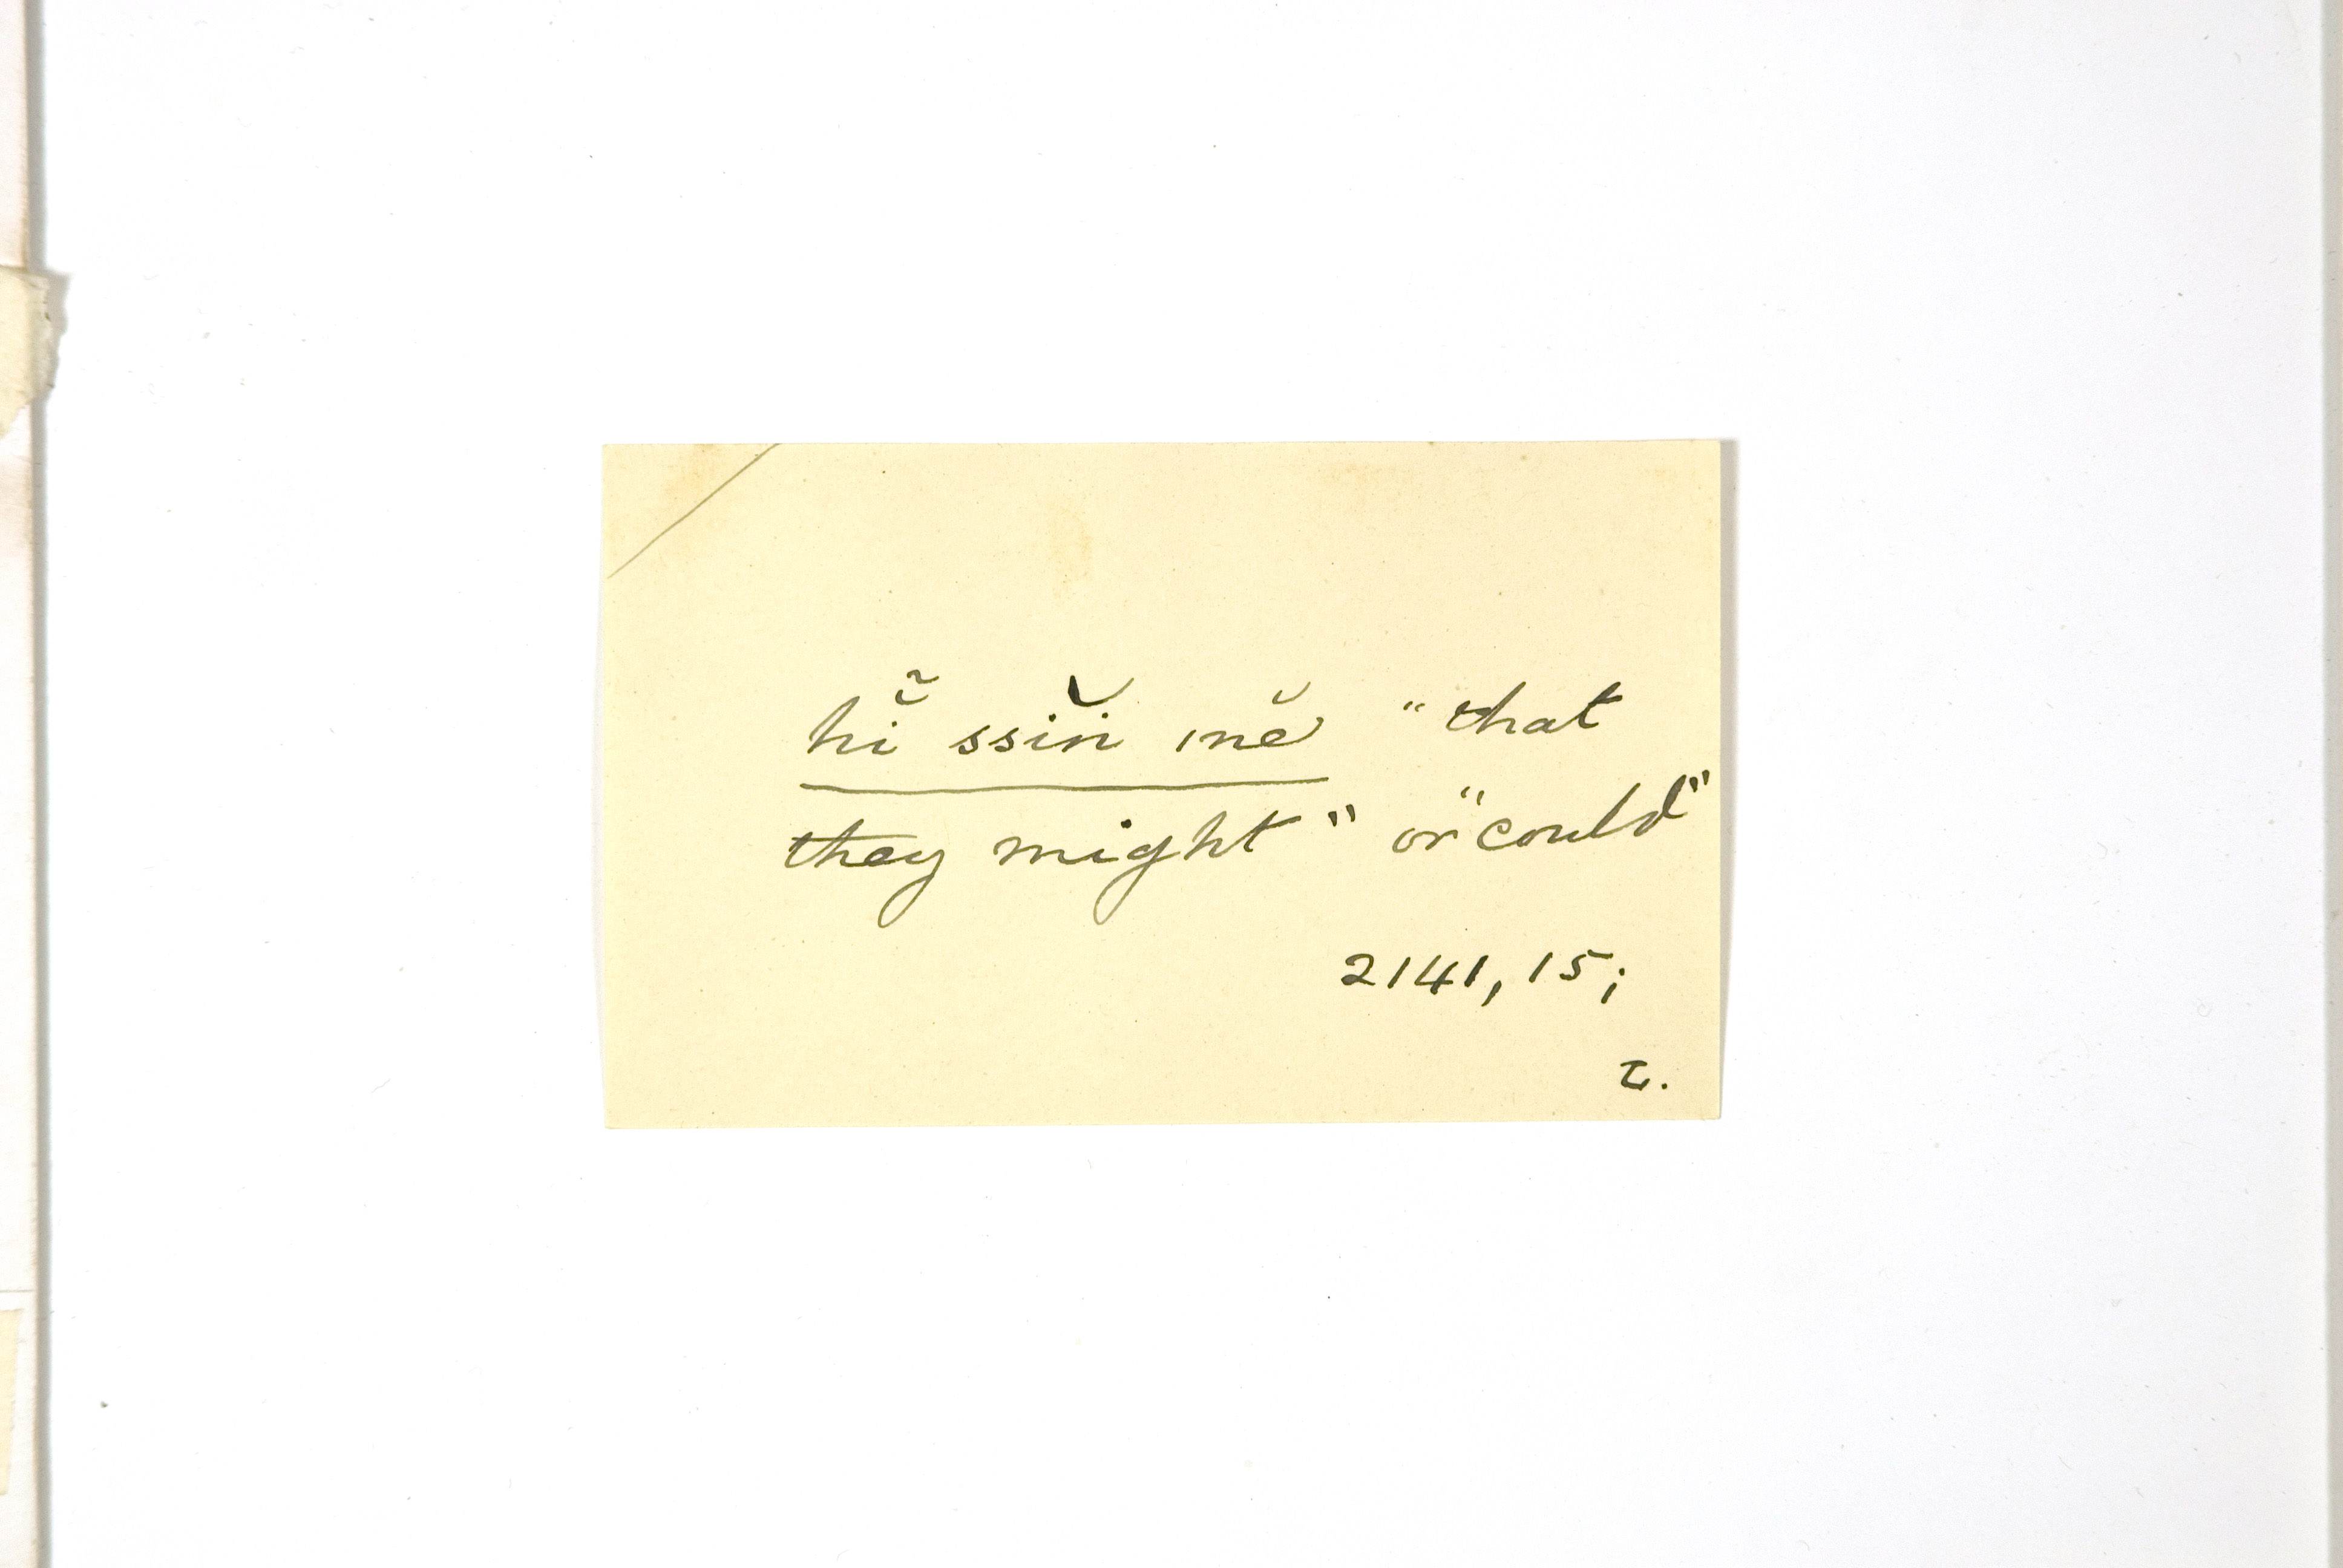 hĭ̃ ssĭn mĕ "that
they might" or "could"
2141, 15;